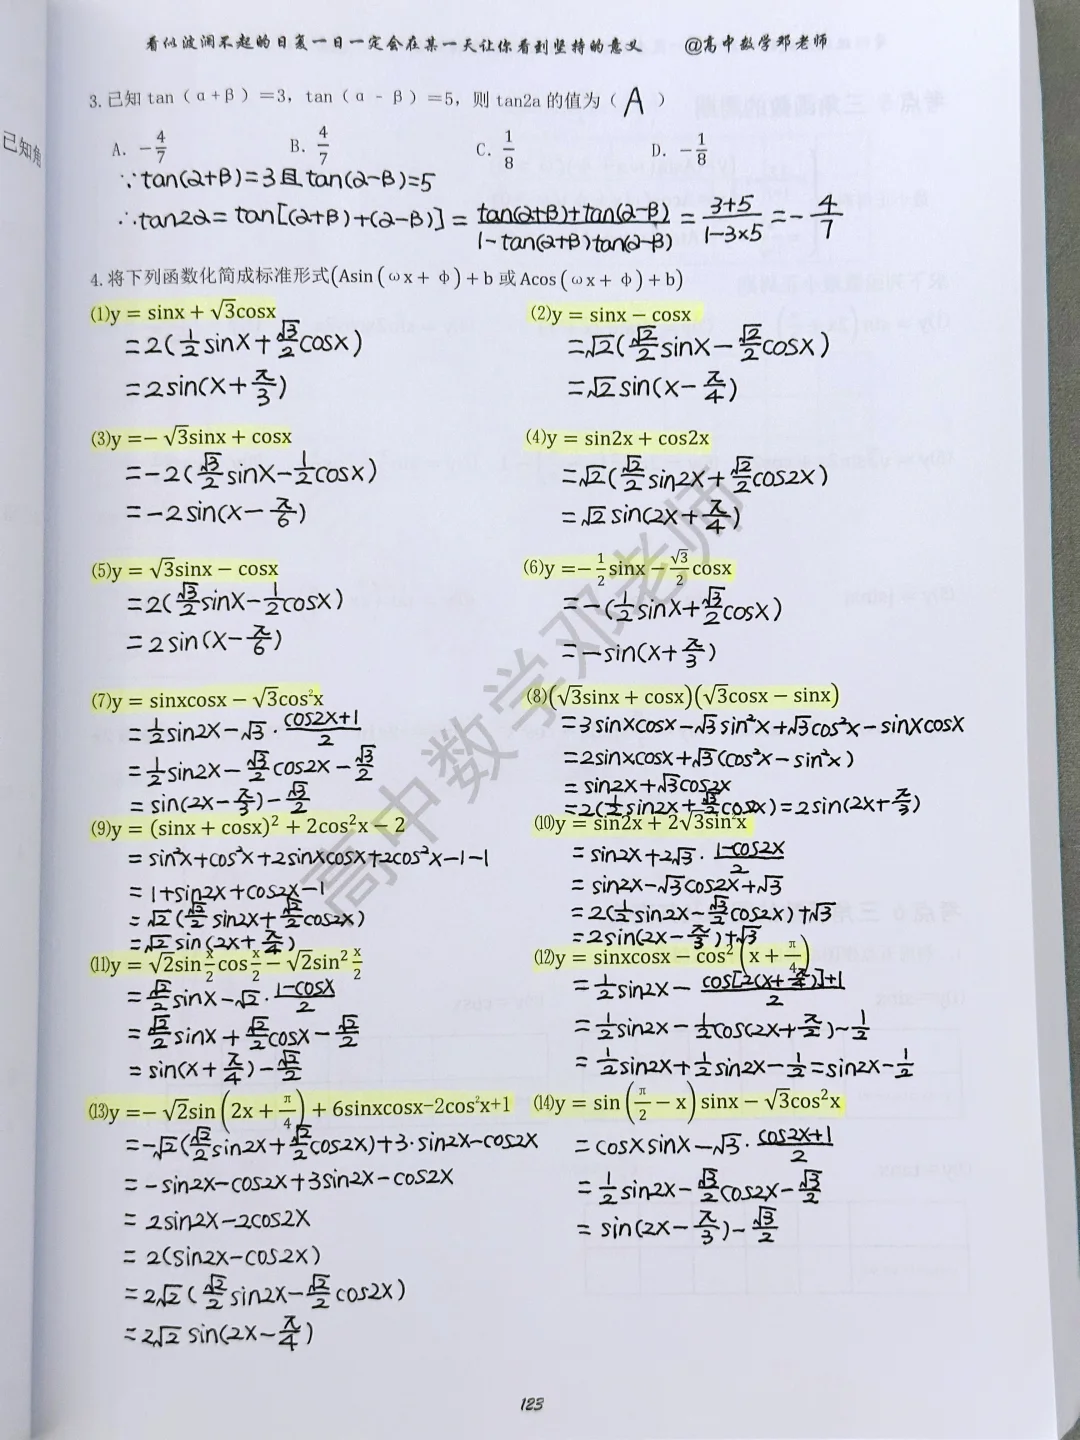 看似波澜不起的日复一日一定会在某一天让你看到坚持的意义 @高中数学邓老师
已知角
3.已知 tan（α+β）=3，tan（α-β）=5，则 tan2a 的值为（ A ）
A. -4/7 B. 4/7 C. 1/8 D. -1/8
∵tan(α+β)=3且tan(α-β)=5
∴tan2α=tan[(α+β)+(α-β)]=(tan(α+β)+tan(α-β))/(1-tan(α+β)tan(α-β))=(3+5)/(1-3×5)=-4/7
4.将下列函数化简成标准形式(Asin(ωx+φ)+b 或 Acos(ωx+φ)+b)
(1)y=sinx+√3cosx
=2(1/2sinx+√3/2cosx)
=2sin(x+π/3)
(2)y=sinx-cosx
=√2(√2/2sinx-√2/2cosx)
=√2sin(x-π/4)
(3)y=-√3sinx+cosx
=-2(√3/2sinx-1/2cosx)
=-2sin(x-π/6)
(4)y=sin2x+cos2x
=√2(√2/2sin2x+√2/2cos2x)
=√2sin(2x+π/4)
(5)y=√3sinx-cosx
=2(√3/2sinx-1/2cosx)
=2sin(x-π/6)
(6)y=-1/2sinx-√3/2cosx
=-(1/2sinx+√3/2cosx)
=-sin(x+π/3)
(7)y=sinxcosx-√3cos²x
=1/2sin2x-√3·(cos2x+1)/2
=1/2sin2x-√3/2cos2x-√3/2
=sin(2x-π/3)-√3/2
(8)(√3sinx+cosx)(√3cosx-sinx)
=3sinxcosx-√3sin²x+√3cos²x-sinxcosx
=2sinxcosx+√3(cos²x-sin²x)
=sin2x+√3cos2x
=2(1/2sin2x+√3/2cos2x)=2sin(2x+π/3)
(9)y=(sinx+cosx)²+2cos²x-2
=sin²x+cos²x+2sinxcosx+2cos²x-1-1
=1+sin2x+cos2x-1
=√2(√2/2sin2x+√2/2cos2x)
=√2sin(2x+π/4)
(10)y=sin2x+2√3sin²x
=sin2x+2√3·(1-cos2x)/2
=sin2x-√3cos2x+√3
=2(1/2sin2x-√3/2cos2x)+√3
=2sin(2x-π/3)+√3
(11)y=√2sin x/2 cos x/2-√2sin² x/2
=√2/2sinx-√2·(1-cosx)/2
=√2/2sinx+√2/2cosx-√2/2
=sin(x+π/4)-√2/2
(12)y=sinxcosx-cos²(x+π/4)
=1/2sin2x-(cos[2(x+π/4)]+1)/2
=1/2sin2x-1/2cos(2x+π/2)-1/2
=1/2sin2x+1/2sin2x-1/2=sin2x-1/2
(13)y=-√2sin(2x+π/4)+6sinxcosx-2cos²x+1
=-√2(√2/2sin2x+√2/2cos2x)+3·sin2x-cos2x
=-sin2x-cos2x+3sin2x-cos2x
=2sin2x-2cos2x
=2(sin2x-cos2x)
=2√2(√2/2sin2x-√2/2cos2x)
=2√2sin(2x-π/4)
(14)y=sin(π/2-x)sinx-√3cos²x
=cosxsinx-√3·(cos2x+1)/2
=1/2sin2x-√3/2cos2x-√3/2
=sin(2x-π/3)-√3/2
高中数学邓老师
123